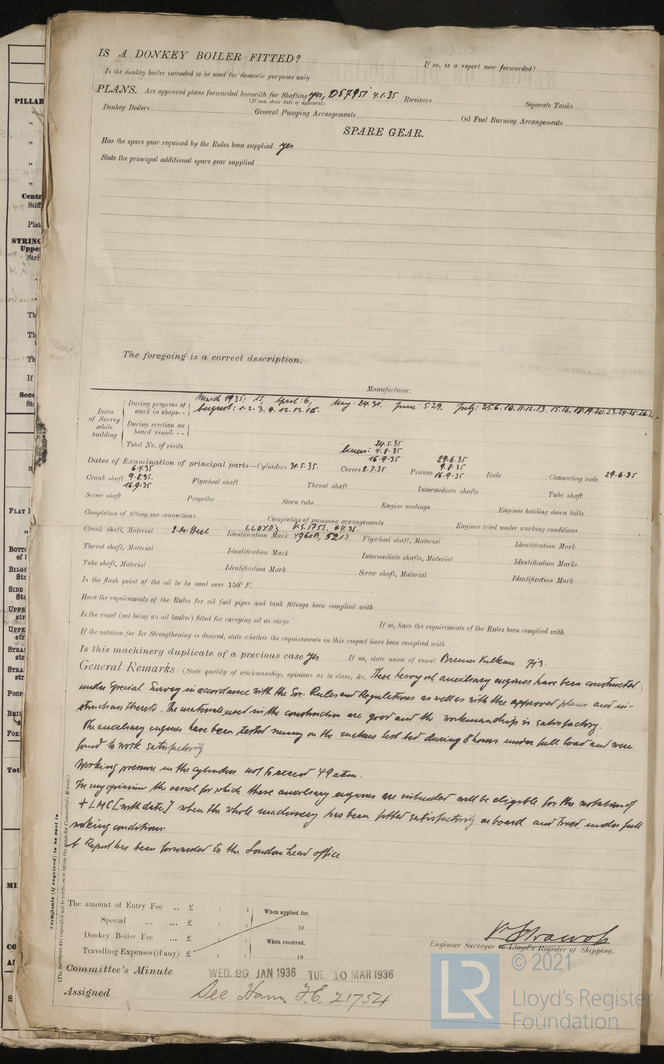 IS A DONKEY BOILER FITTED?
If so, is a report now forwarded?
Is the donkey boiler intended to be used for domestic purposes only
PLANS. Are approved plans forwarded herewith for Shafting yes, D57951 4.1.35 Receivers Separate Tanks
(If not, state date of approval)
Donkey Boilers General Pumping Arrangements Oil Fuel Burning Arrangements
SPARE GEAR.
Has the spare gear required by the Rules been supplied yes
State the principal additional spare gear supplied
The foregoing is a correct description,
Manufacturer.
Dates of Survey while building
During progress of work in shops - - March 1935: 15, April: 6, May: 24.31. June: 5.29. July:
August: 1.2.3.9.12.13.16.
During erection on board vessel - - -
Total No. of visits
Dates of Examination of principal parts—Cylinders 31.5.35. Covers 2.7.35 Pistons 29.6.35 9.8.35 16.9.35 Rods Connecting rods 29.6.35
24.5.35
liners: 9.8.35
16.9.35
Crank shaft 6.4.35 9.8.35. 16.9.35 Flywheel shaft Thrust shaft Intermediate shafts Tube shaft
Screw shaft Propeller Stern tube Engine seatings Engines holding down bolts
Completion of fitting sea connections Completion of pumping arrangements Engines tried under working conditions
Crank shaft, Material Identification Mark LLOYD's Flywheel shaft, Material Identification Mark
Thrust shaft, Material Identification Mark Intermediate shafts, Material Identification Marks
Tube shaft, Material Identification Mark Screw shaft, Material Identification Mark
Is the flash point of the oil to be used over 150° F.
Have the requirements of the Rules for oil fuel pipes and tank fittings been complied with
Is the vessel (not being an oil tanker) fitted for carrying oil as cargo If so, have the requirements of the Rules been complied with
If the notation for Ice Strengthening is desired, state whether the requirements in this respect have been complied with
Is this machinery duplicate of a previous case yes If so, state name of vessel Bremer Vulkan 713.
General Remarks (State quality of workmanship, opinions as to class, &c. These heavy oil auxiliary engines have been constructed
under Special Survey in accordance with the Soc. Rules and Regulations as well as with the approved plans and in-
structions thereto. The materials used in the construction are good and the workmanship is satisfactory.
The auxiliary engines have been tested running on the makers test bed during 8 hours under full load and were
found to work satisfactorily
Working pressure in the cylinders not to exceed 49 atm.
In my opinion the vessel for which these auxiliary engines are intended will be eligible for the notation of
+ LMC [with date] when the whole machinery has been fitted satisfactorily on board and tried under full
working conditions.
A Report has been forwarded to the London head office
The amount of Entry Fee .. £ : : When applied for,
Special ... ... £ : : 19
Donkey Boiler Fee ... £ : : When received,
Travelling Expenses (if any) £ : : 19
Engineer Surveyor to Lloyd's Register of Shipping.
Committee's Minute WED. 29 JAN 1936 TUE. 10 MAR 1936
Assigned See Ham. F.E. 21754
LR
© 2021
Lloyd's Register
Foundation